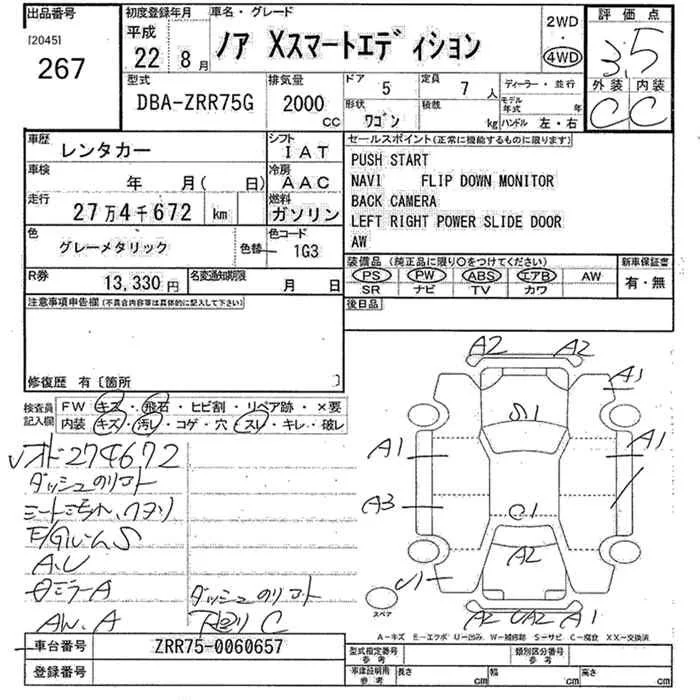 出品番号 初度登録年月 車名・グレード 2WD 評価点
[2045] 平成 ・ 3.5
267 22年 8月 ノア Xスマートエディション 4WD
型式 排気量 ドア 5 定員 7人 ディーラー・並行 外装 内装
DBA-ZRR75G 2000cc 形状 ワゴン 積載 kg モデル年式 年 ハンドル 左・右 C C
車歴 レンタカー シフト IAT セールスポイント(正常に機能するものに限ります)
車検 年 月( 日) 冷房 AAC PUSH START
走行 27万4千672 km 燃料 ガソリン NAVI FLIP DOWN MONITOR
BACK CAMERA
LEFT RIGHT POWER SLIDE DOOR
AW
色 グレーメタリック 色替 色コード 1G3
装備品(純正品に限り○をつけてください) 新車保証書
R券 13,330円 名変通知期限 月 日 PS PW ABS エアB AW 有・無
SR ナビ TV カワ
注意事項申告欄(不具合内容等は具体的に記入して下さい) 後日品
修復歴 有〔箇所 〕
検査員記入欄 FW キズ・飛石・ヒビ割・リペア跡・×要
内装 キズ・汚レ・コゲ・穴・スレ・キレ・破レ
274672
ダッシュのリコト
E/Gルーム S
A.U
ミラーA
AW.A
ダッシュのリコト
C
A2 A2
A1
S1
A1 A1
A3
C1
A2
U1
A2 UA2 A1
スペア
A-キズ E-エクボ U-凹み W-補修跡 S-サビ C-腐食 XX-交換済
車台番号 ZRR75-0060657 型式指定番号 参考 類別区分番号 参考
登録番号 車庫証明用 参考 長さ cm 幅 cm 高さ cm